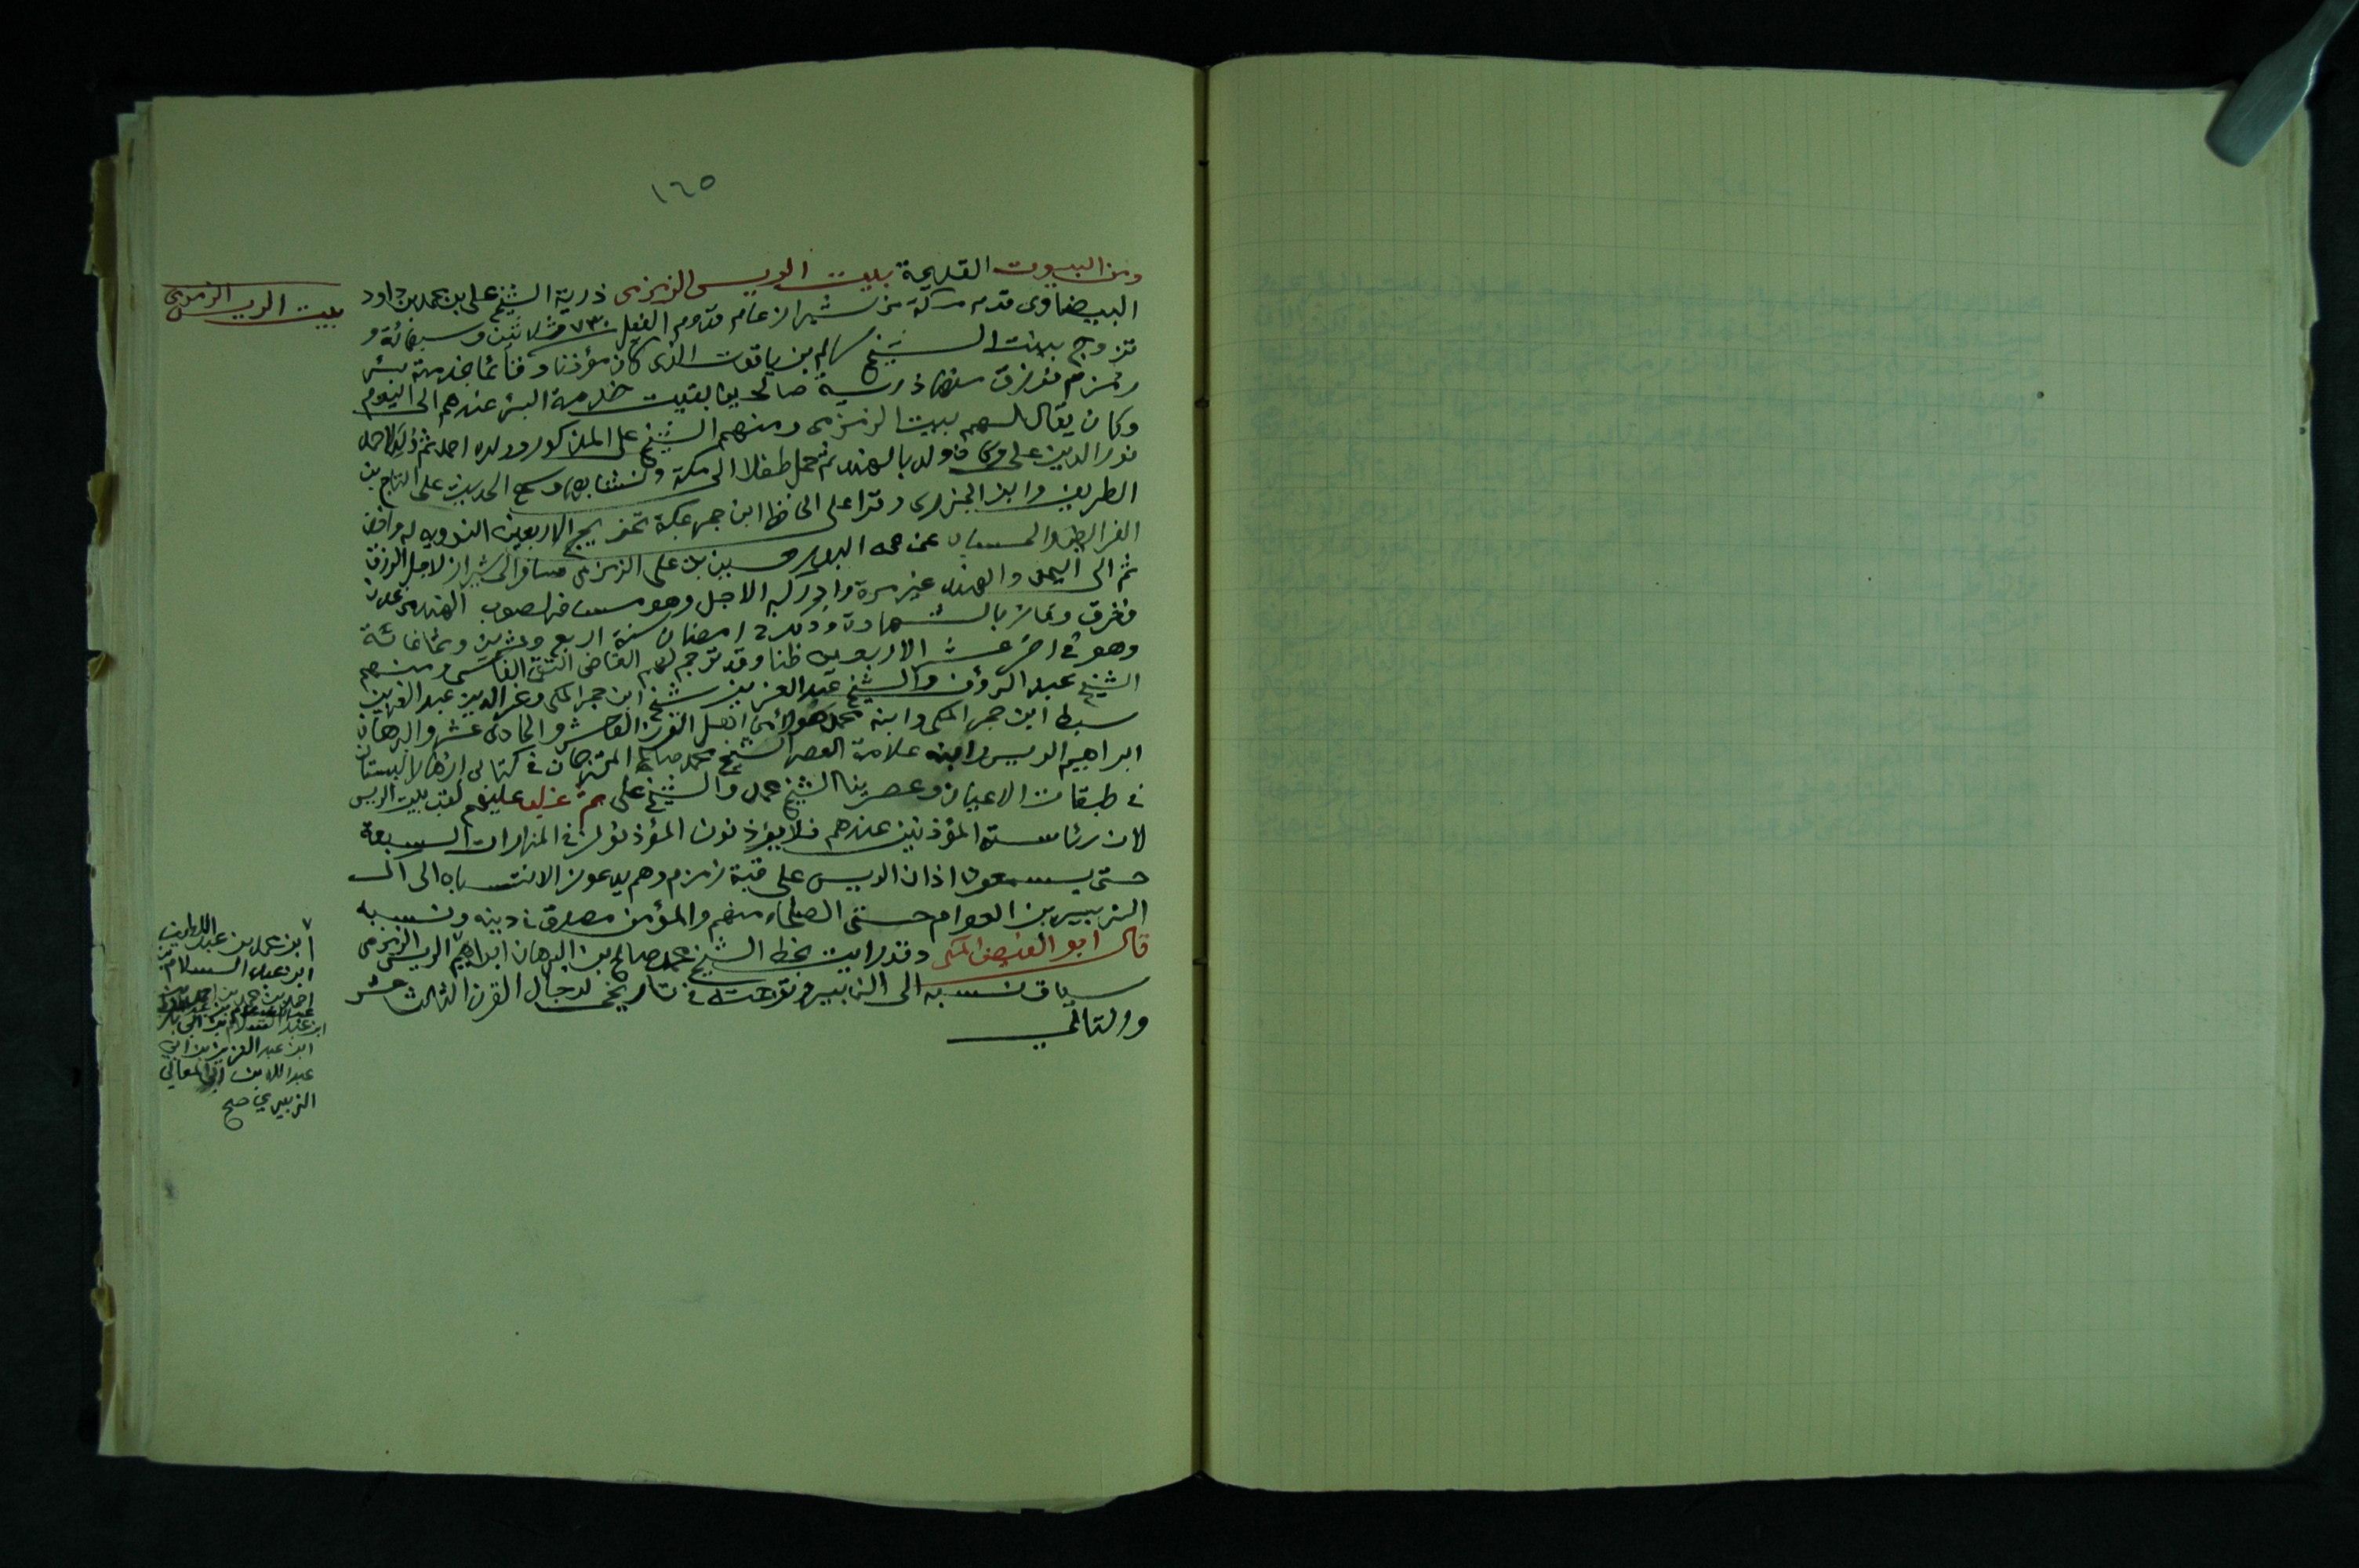 ١٦٥
ومن البيوت القديمة بيت الريس الزمزمى ذرية الشيخ على بن محمد بن داود
بيت الريس الزمزمى
البيضاوى قدم مكة من شيراز عام قدوم الفيل سنة ٧٣٠ ثلاثين وسبعمائة و
تزوج ببنت الشيخ سالم بن ياقوت الذى كان مؤذنا وقائما بخدمة بئر
زمزم فرزق منها ذرية صالحين بقيت خدمة البئر عندهم الى اليوم
وكان يقال لهم بيت الزمزمى ومنهم الشيخ على المذكور وولده احمد ثم
نور الدين على ولد بالهند ثم حمل طفلا الى مكة ونشأ بها وسمع الحديث على
الطريف وابن الجزرى وقرأ على الحافظ ابن حجر بمكة تخريج الاربعين النووية له
الفرائض والحساب عن عمه البدر حسين بن على الزمزمى سافر الى شيراز لاجل الرزق
ثم الى اليمن والهند غير مرة وادركه الاجل وهو مسافر لصوب الهند من عدن
فغرق وفاز بالشهادة وذلك فى رمضان سنة اربع وعشرين وثمانمائة
وهو فى اخر عشر الاربعين ظنا وقد ترجم لهم القاضى التقى الفاسى ومنهم
الشيخ عبد الرؤف والشيخ عبد العزيز شيخ ابن حجر المكى وعز الدين عبد العزيز
سبط ابن حجر المكى وابنه محمد هؤلاء من اهل القرن العاشر والحادى عشر والبرهان
ابراهيم الريس وابنه علامة العصر الشيخ محمد صالح المترجمان فى كتابى ازهار البستان
فى طبقات الاعيان وعصرينا الشيخ محمد والشيخ على ثم غلب عليهم لقب بيت الريس
لان رئاسة المؤذنين عندهم فلا يؤذنون المؤذنون فى المنارات السبعة
حتى يسمعون اذان الريس على قبة زمزم وهم يدعون الانتساب الى ال
الزبير بن العوام حتى الصلحاء منهم والمؤمن مصدق فى دينه ونسبه
قال ابو الفيض المكى وقد رايت بخط الشيخ محمد صالح بن البرهان ابراهيم الريس الزمزمى
سياق نسبه الى الزبير فى تاريخى لرجال القرن الثالث عشر
والتالي
ابن محمد بن عبد اللطيف
ابن عبد السلام بن
ابن عبد السلام بن ابى بكر
ابن عبد العزيز بن ابى
عبد الله بن ابى المعالي
الزبيري صح